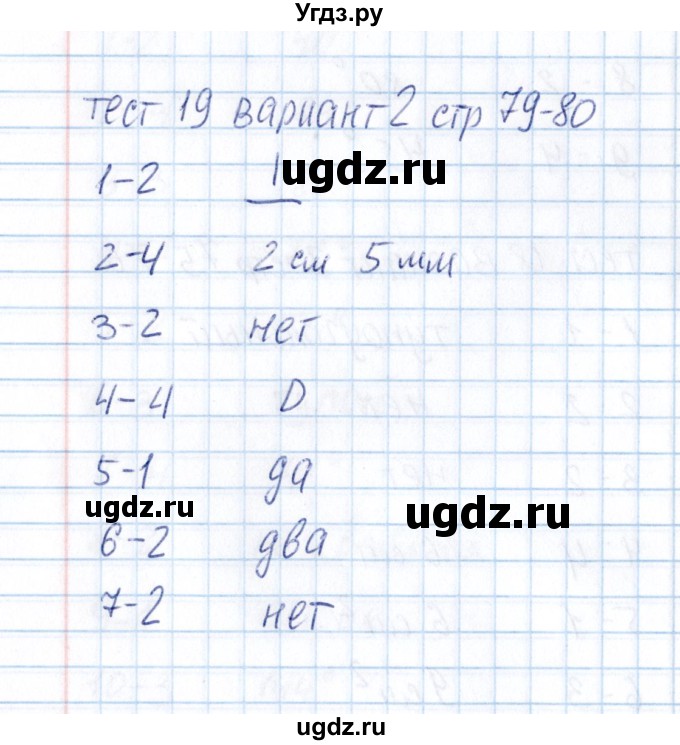 Угдз.ру
тест 19 вариант 2 стр 79-80
1-2
ugdz.ru
2-4 2 см 5 мм
3-2 нет
4-4 D
5-1 да
ugdz.ru ugdz.ru
6-2 два
7-2 нет
ugdz.ru